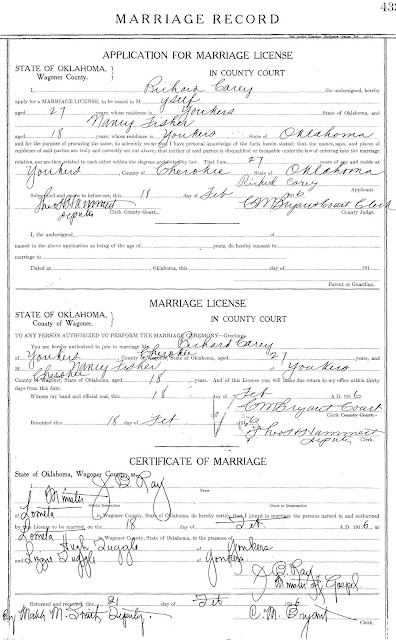 433
MARRIAGE RECORD
APPLICATION FOR MARRIAGE LICENSE
STATE OF OKLAHOMA,
Wagoner County.
IN COUNTY COURT
I, Richard Carey the undersigned, hereby
apply for a MARRIAGE LICENSE, to be issued to M yself
aged 27 years, whose residence is Yonkers State of Oklahoma, and
Nancy Fisher
aged 18 years, whose residence is Yonkers State of Oklahoma
and for the purpose of procuring the same, do solemnly swear that I have personal knowledge of the facts herein stated; that the names, ages, and places of
residence of said parties are truly and correctly set out above; that neither of said parties is disqualified or incapable under the law of entering into the marriage
relation, nor are they related to each other within the degrees prohibited by law. That I am 27 years of age and reside at
Yonkers, County of Cherokee State of Oklahoma
Richard Carey
Applicant.
Subscribed and sworn to before me, this 18 day of Feb 6
Theo H Hammett C M Bryant Court Clerk
Deputy Clerk County Court. County Judge.
I, the undersigned,
named in the above application as being of the age of years, do hereby consent to
marriage to
Dated at Oklahoma, this day of 191
Parent or Guardian.
MARRIAGE LICENSE
STATE OF OKLAHOMA,
County of Wagoner.
IN COUNTY COURT
TO ANY PERSON AUTHORIZED TO PERFORM THE MARRIAGE CEREMONY—Greeting:
You are hereby authorized to join in marriage Mr. Richard Carey
of Yonkers Cherokee County of Wagoner, State of Oklahoma, aged 27 years, and
M Nancy Fisher of Yonkers
Cherokee
County of Wagoner, State of Oklahoma, aged 18 years. And of this License you will make due return to my office within thirty
days from this date.
Witness my hand and official seal, this 18 day of Feb A.D. 191 6
C M Bryant Court
Clerk
Recorded this 18 day of Feb 191 6
Theo H Hammett
Deputy Clerk.
CERTIFICATE OF MARRIAGE
State of Oklahoma, Wagoner County, ss.
I, J B Ray
Name
Minister
Official Designation Court or Congregation
of Lometa in Wagoner County, State of Oklahoma, do hereby certify that I joined in marriage the persons named in and authorized
by this License to be married, on the 18 day of Feb. A.D. 191 6, at
Lometa in Wagoner County, State of Oklahoma, in the presence of
Hugh Tuggle of Yonkers
and Lizzie Tuggle of Yonkers
J B Ray
Minister of Gospel.
Returned and recorded this 21 day of Feb 191 6
By Mabel M. Smith Deputy. C. M. Bryant